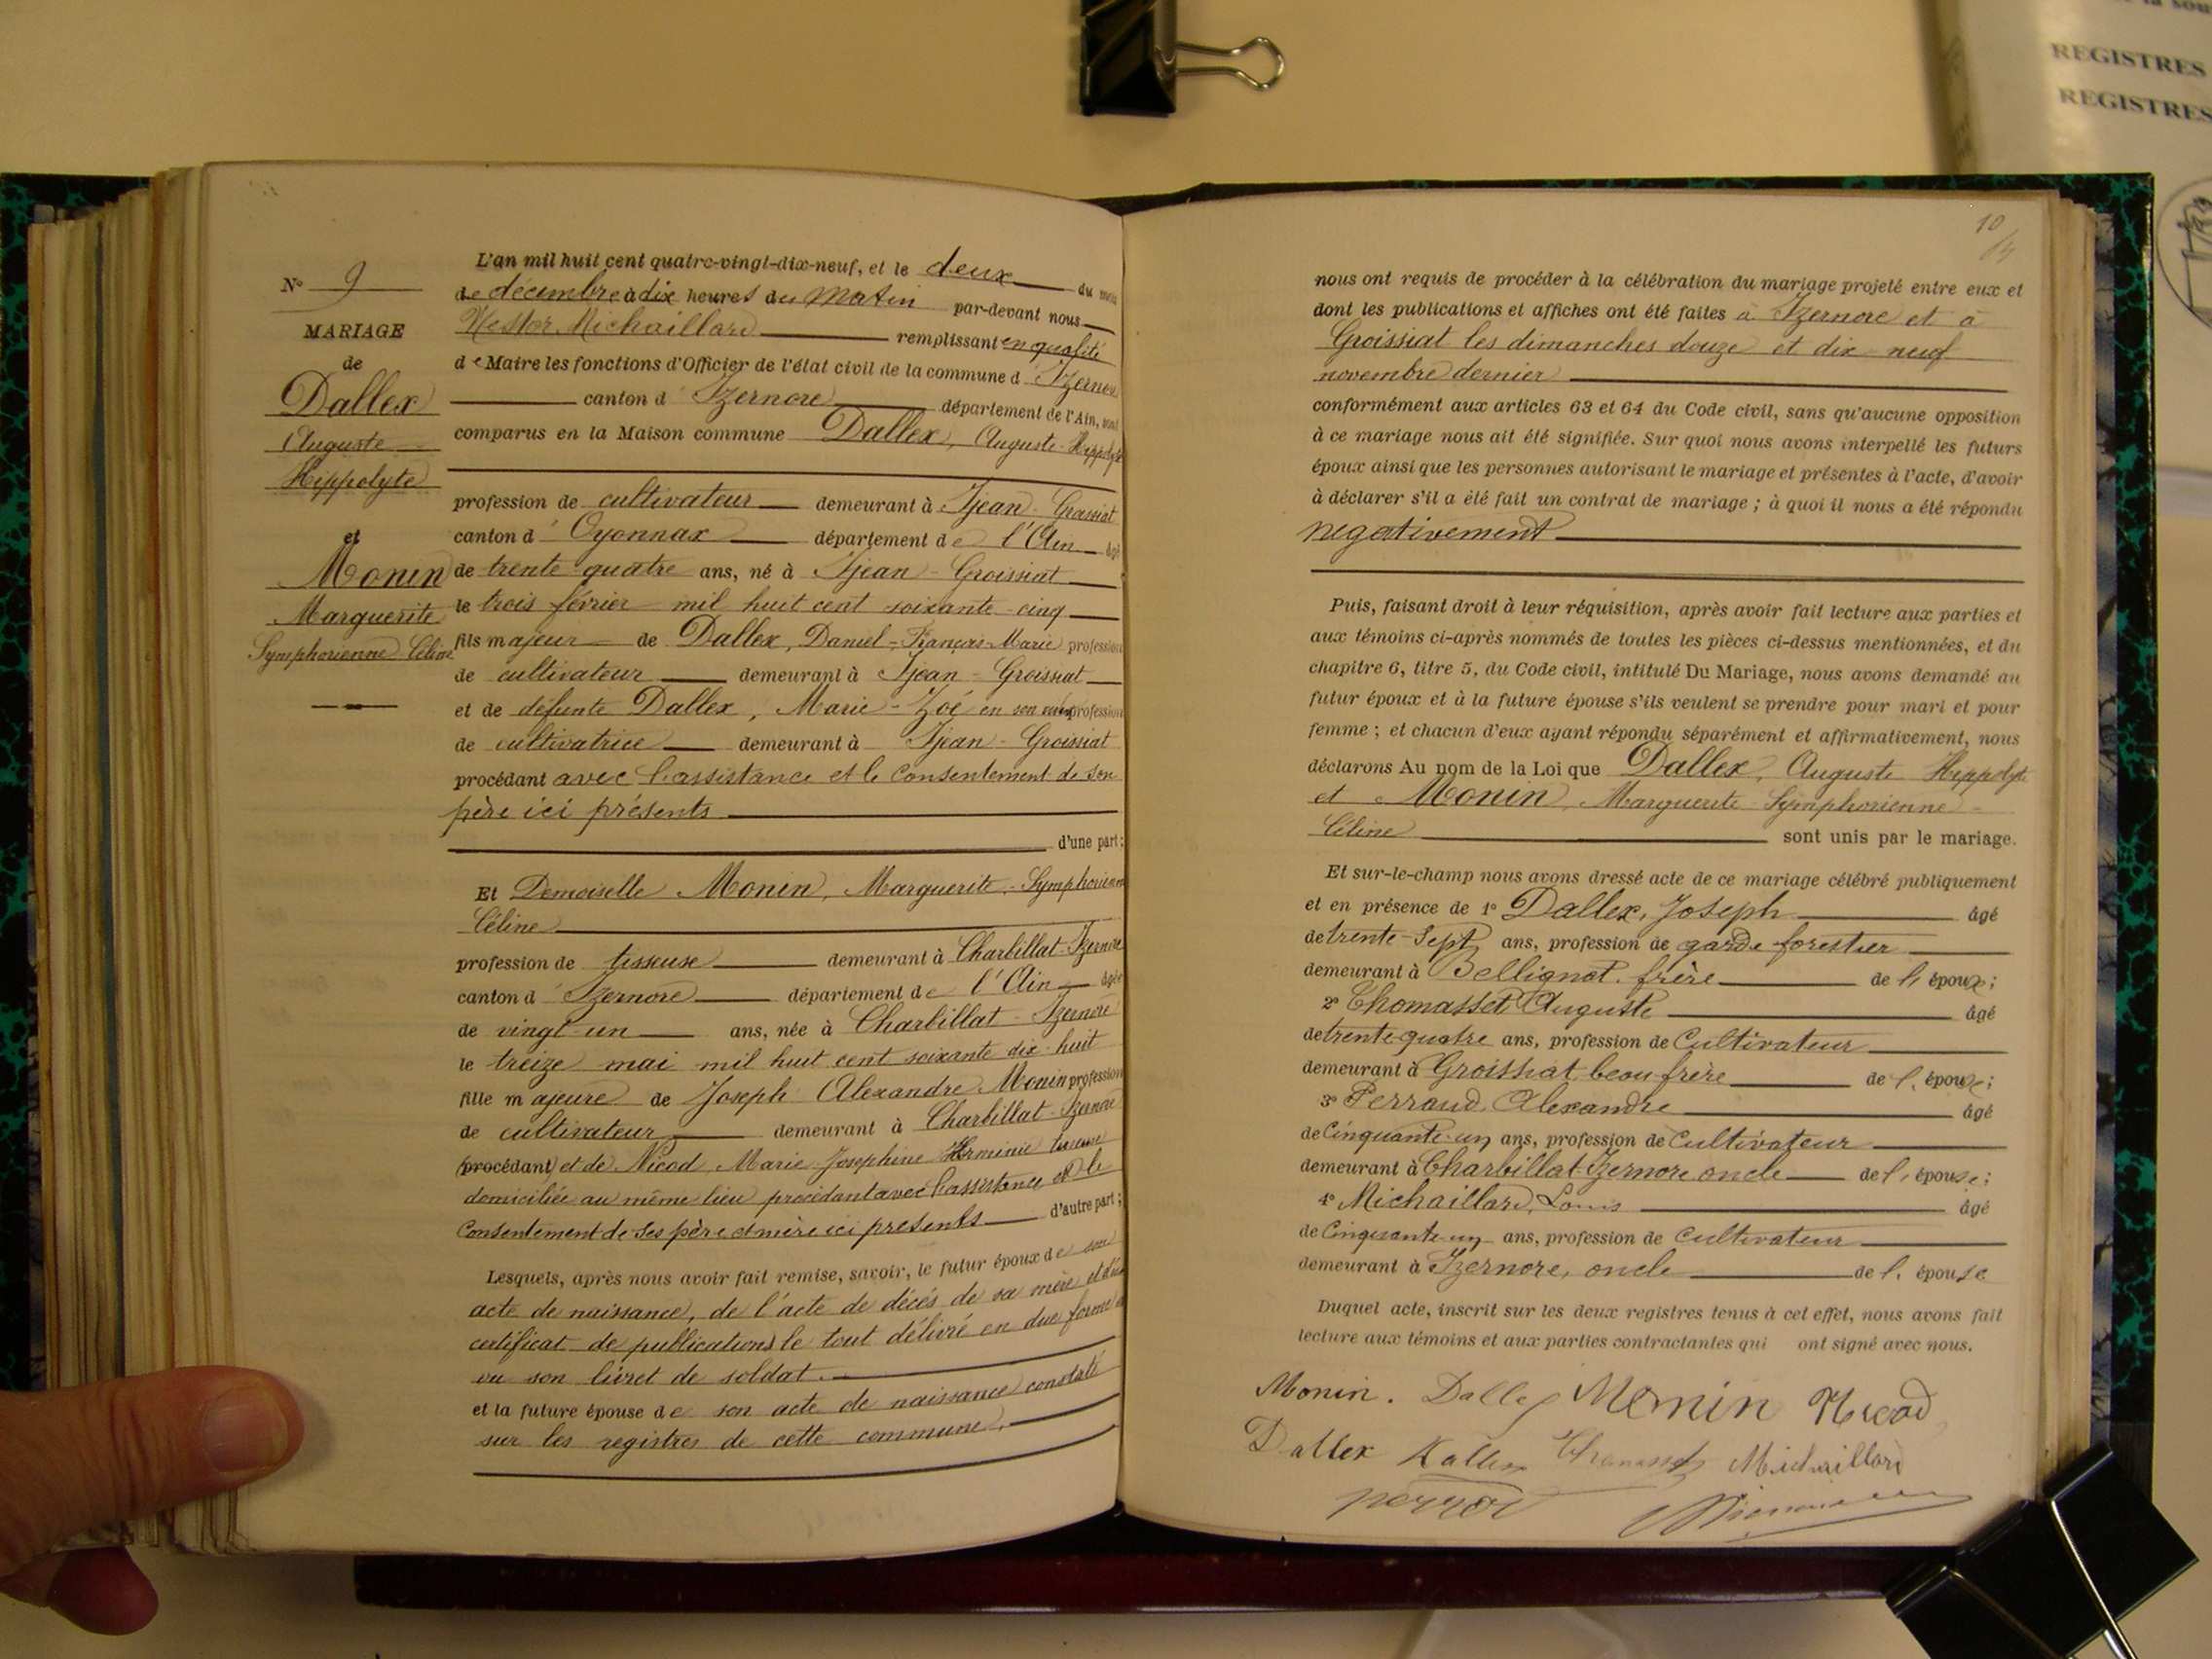 REGISTRES
REGISTRES
N° 9
MARIAGE
de
Dallex
Auguste
Hippolyte
et
Monin
Marguerite
Symphorienne Céline
L'an mil huit cent quatre-vingt-dix-neuf, et le deux du mois
de décembre à dix heures du matin par-devant nous
Nestor Michaillard remplissant en qualité
de Maire les fonctions d'Officier de l'état civil de la commune d'Izernore
canton d'Izernore département de l'Ain, sont
comparus en la Maison commune Dallex, Auguste-Hippolyte
profession de cultivateur demeurant à Ijean-Groissiat
canton d'Oyonnax département de l'Ain âgé
de trente-quatre ans, né à Ijean-Groissiat
le trois février mil huit cent soixante-cinq
fils majeur de Dallex, Daniel-François-Marie profession
de cultivateur demeurant à Ijean-Groissiat
et de défunte Dallex, Marie-Zoé en son vivant profession
de cultivatrice demeurant à Ijean-Groissiat
procédant avec l'assistance et le consentement de son
père ici présents
d'une part;
Et Demoiselle Monin, Marguerite-Symphorienne
Céline
profession de tisseuse demeurant à Charbillat-Izernore
canton d'Izernore département de l'Ain âgée
de vingt-un ans, née à Charbillat-Izernore
le treize mai mil huit cent soixante dix-huit
fille majeure de Joseph Alexandre Monin profession
de cultivateur demeurant à Charbillat-Izernore
(procédant) et de Nicod Marie-Josephine Herminie tisseuse
domiciliée au même lieu procédant avec l'assistance et le
consentement de ses père et mère ici présents d'autre part;
Lesquels, après nous avoir fait remise, savoir, le futur époux de son
acte de naissance, de l'acte de décés de sa mère et d'un
certificat de publications le tout délivré en due forme
vu son livret de soldat.
et la future épouse de son acte de naissance constaté
sur les registres de cette commune.
10
nous ont requis de procéder à la célébration du mariage projeté entre eux et
dont les publications et affiches ont été faites à Izernore et à
Groissiat les dimanches douze et dix-neuf
novembre dernier
conformément aux articles 63 et 64 du Code civil, sans qu'aucune opposition
à ce mariage nous ait été signifiée. Sur quoi nous avons interpellé les futurs
époux ainsi que les personnes autorisant le mariage et présentes à l'acte, d'avoir
à déclarer s'il a été fait un contrat de mariage ; à quoi il nous a été répondu
negativement
Puis, faisant droit à leur réquisition, après avoir fait lecture aux parties et
aux témoins ci-après nommés de toutes les pièces ci-dessus mentionnées, et du
chapitre 6, titre 5, du Code civil, intitulé Du Mariage, nous avons demandé au
futur époux et à la future épouse s'ils veulent se prendre pour mari et pour
femme ; et chacun d'eux ayant répondu séparément et affirmativement, nous
déclarons Au nom de la Loi que Dallex, Auguste Hippolyte
et Monin, Marguerite Symphorienne
Céline sont unis par le mariage.
Et sur-le-champ nous avons dressé acte de ce mariage célébré publiquement
et en présence de 1° Dallex, Joseph âgé
de trente-sept ans, profession de garde forestier
demeurant à Bellignat, frère de l'époux;
2° Thomasset Auguste âgé
de trente-quatre ans, profession de Cultivateur
demeurant à Groissiat beau frère de l'époux;
3° Perraud Alexandre âgé
de Cinquante-un ans, profession de Cultivateur
demeurant à Charbillat-Izernore oncle de l'épouse;
4° Michaillard, Louis âgé
de Cinquante-un ans, profession de Cultivateur
demeurant à Izernore, oncle de l'épouse
Duquel acte, inscrit sur les deux registres tenus à cet effet, nous avons fait
lecture aux témoins et aux parties contractantes qui ont signé avec nous.
Monin. Dallex Monin Nicod
Dallex Dallex Thomasset Michaillard